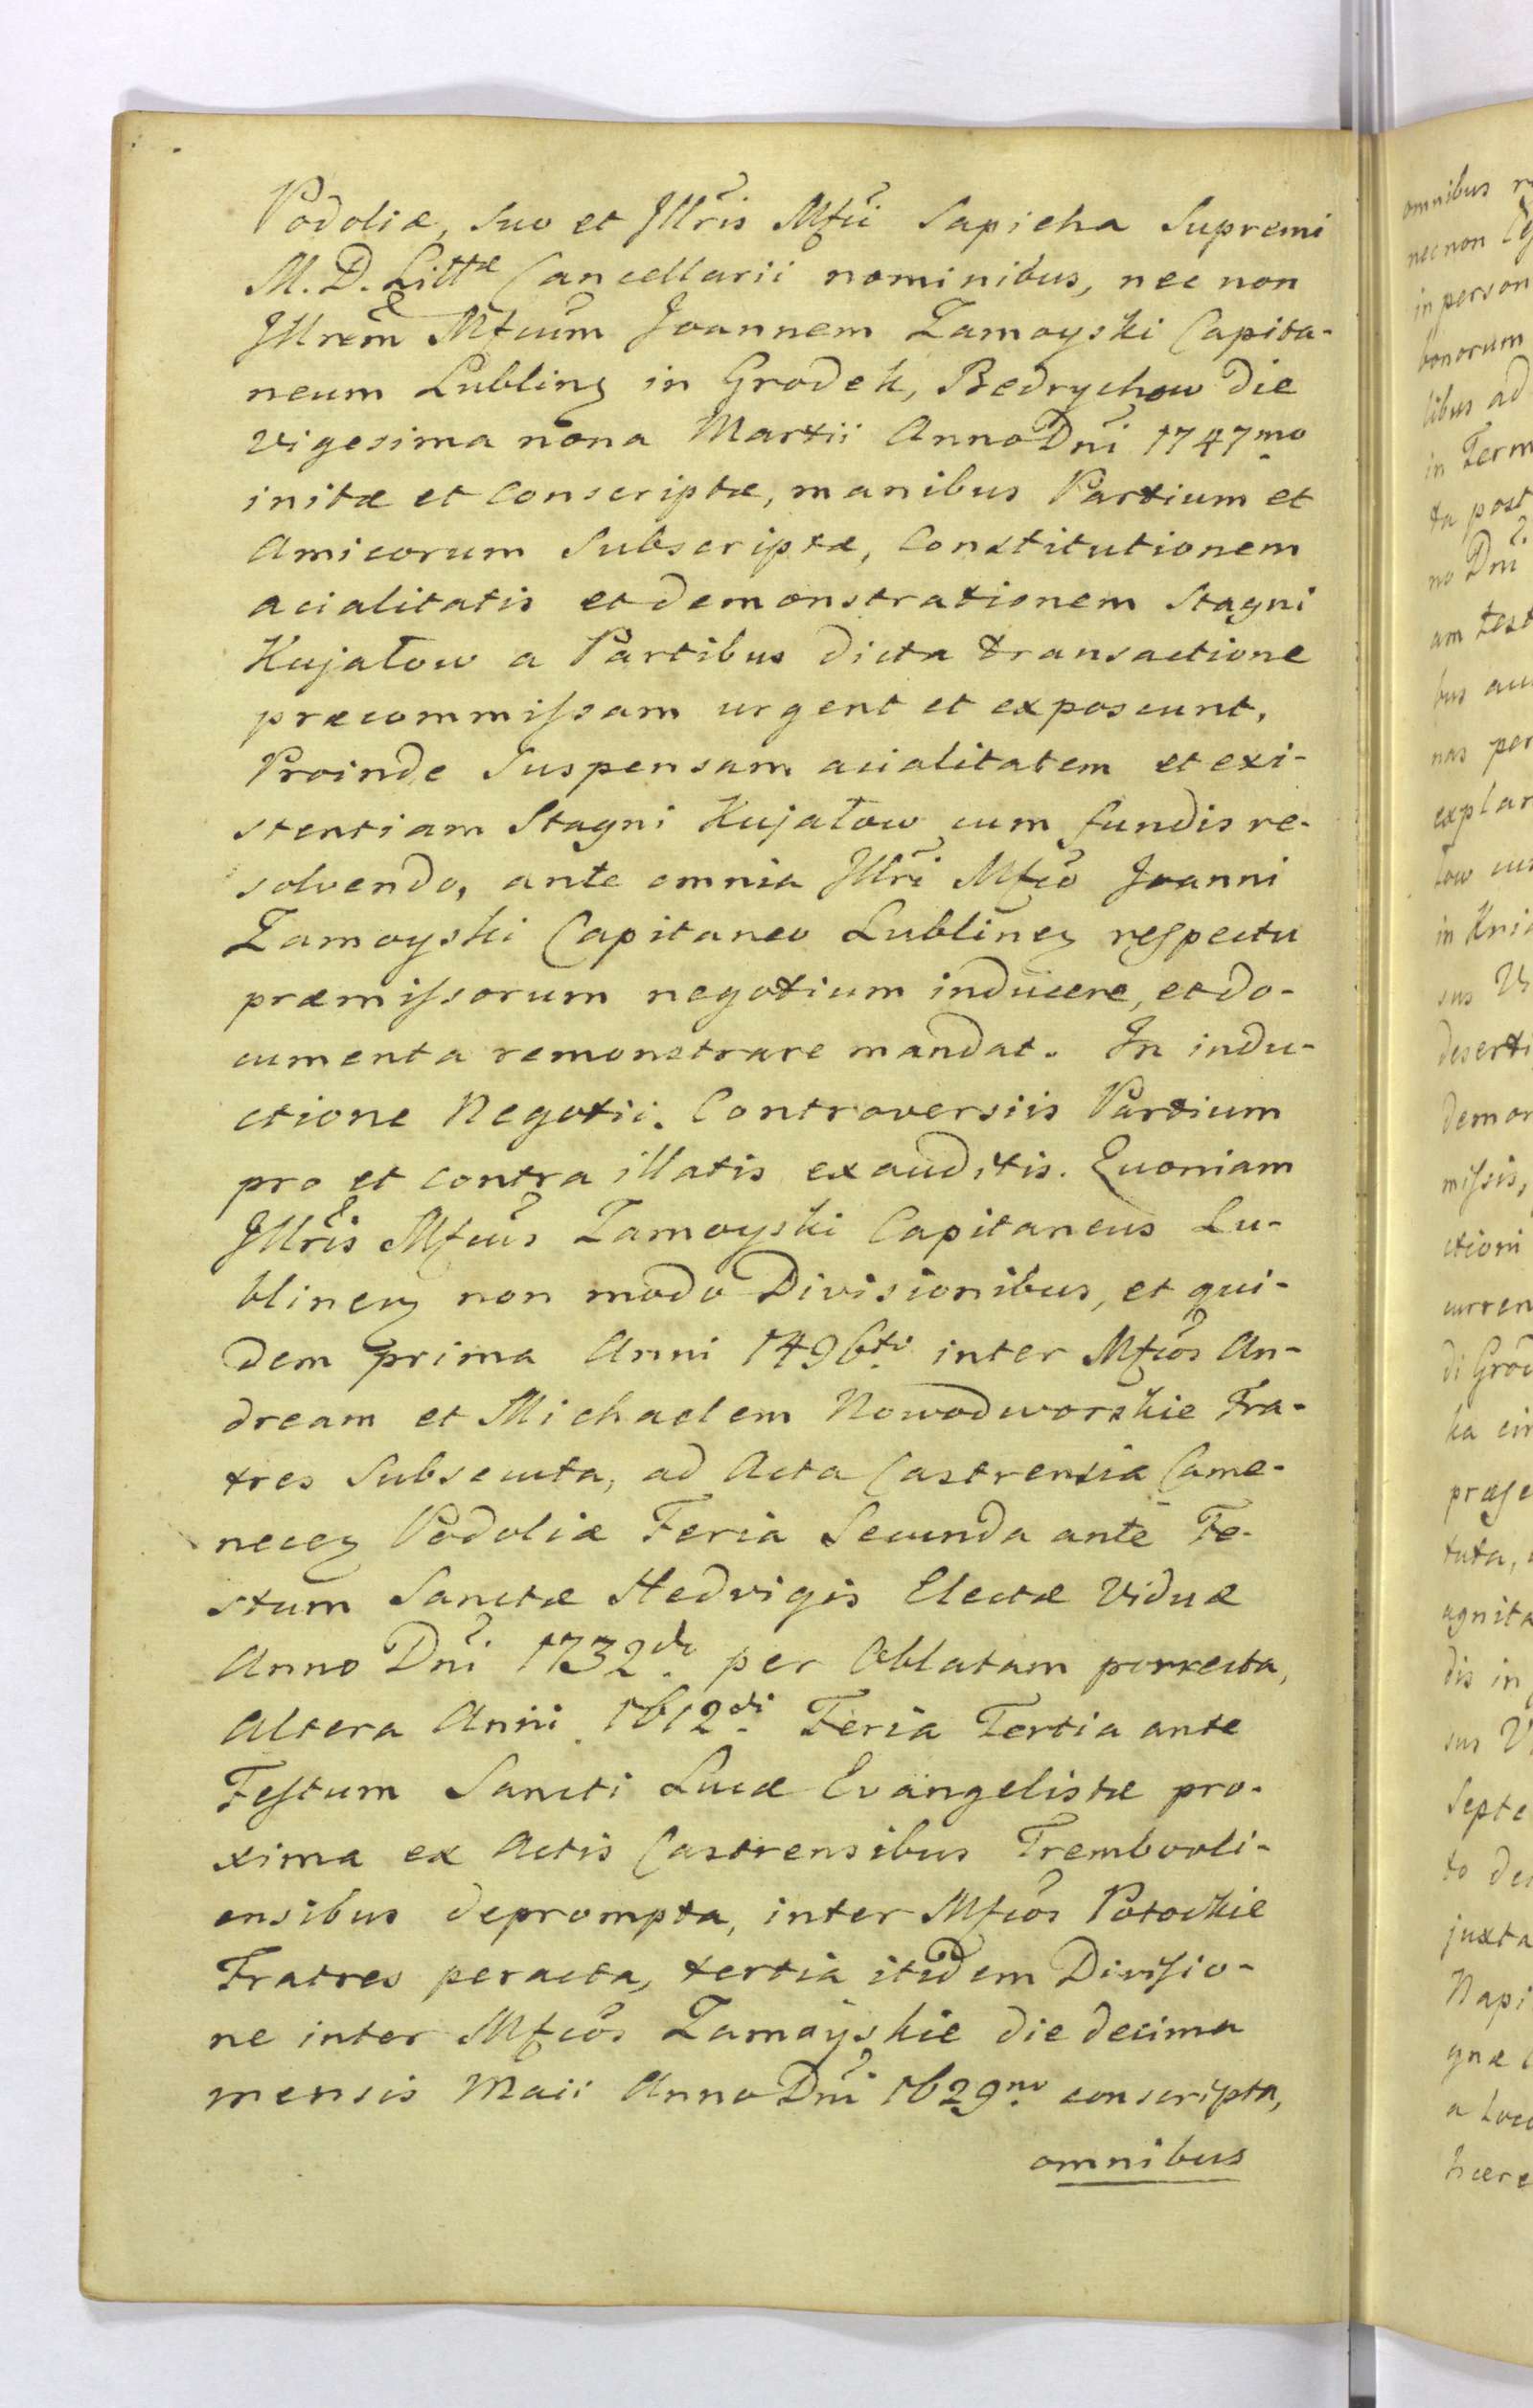 Podoliæ, suo et Jllr̃is Mfc̃i Sapieha Supremi
M. D. Littæ Cancellarii nominibus, nec non
Jllrem̃ Mfcum̃ Joannem Zamoyski Capita-
neum Lublinen͂ in Grodek, Bedrychow die
vigesima nona Martii Anno Dnĩ 1747mo
initæ et conscriptæ, manibus Partium et
Amicorum Subscriptæ, Constitutionem
acialitatis et demonstrationem Stagni
Kujałow a Partibus dicta transactione
præcommissam urgent et exposcunt,
Proinde Suspensam acialitatem et exi-
stentiam Stagni Kujałow cum fundis re-
solvendo, ante omnia Jllrĩ Mfcõ Joanni
Zamoyski Capitaneo Lublinen͂ respectu
præmissorum negotium inducere, et do-
cumenta remonstrare mandat. In indu-
ctione Negotii. Controversiis Partium
pro et contra illatis exauditis. Quoniam
Jllr̃is Mfcus̃ Zamoyski Capitaneus Lu-
blinen͂ non modo Divisionibus, et qui-
dem prima Anni 1496ti inter Mfcos̃ An-
dream et Michaelem Nowodworskie Fra-
tres Subsecuta, ad Acta Castrensia Came-
necen͂ Podoliæ Feria Secunda ante Fe-
stum Sanctæ Hedvigis Electæ Viduæ
Anno Dnĩ 1732do per Oblatam porrecta,
Altera Anni 1612di Feria Tertia ante
Festum Sancti Lucæ Evangelistæ pro-
xima ex Actis Castrensibus Trembovli-
ensibus deprompta, inter Mfcos̃ Potockie
Fratres peracta, tertia itidem Divisio-
ne inter Mfcos̃ Zamoyskie die decima
mensis Maii Anno Dnĩ 1629no conscripta,
omnibus